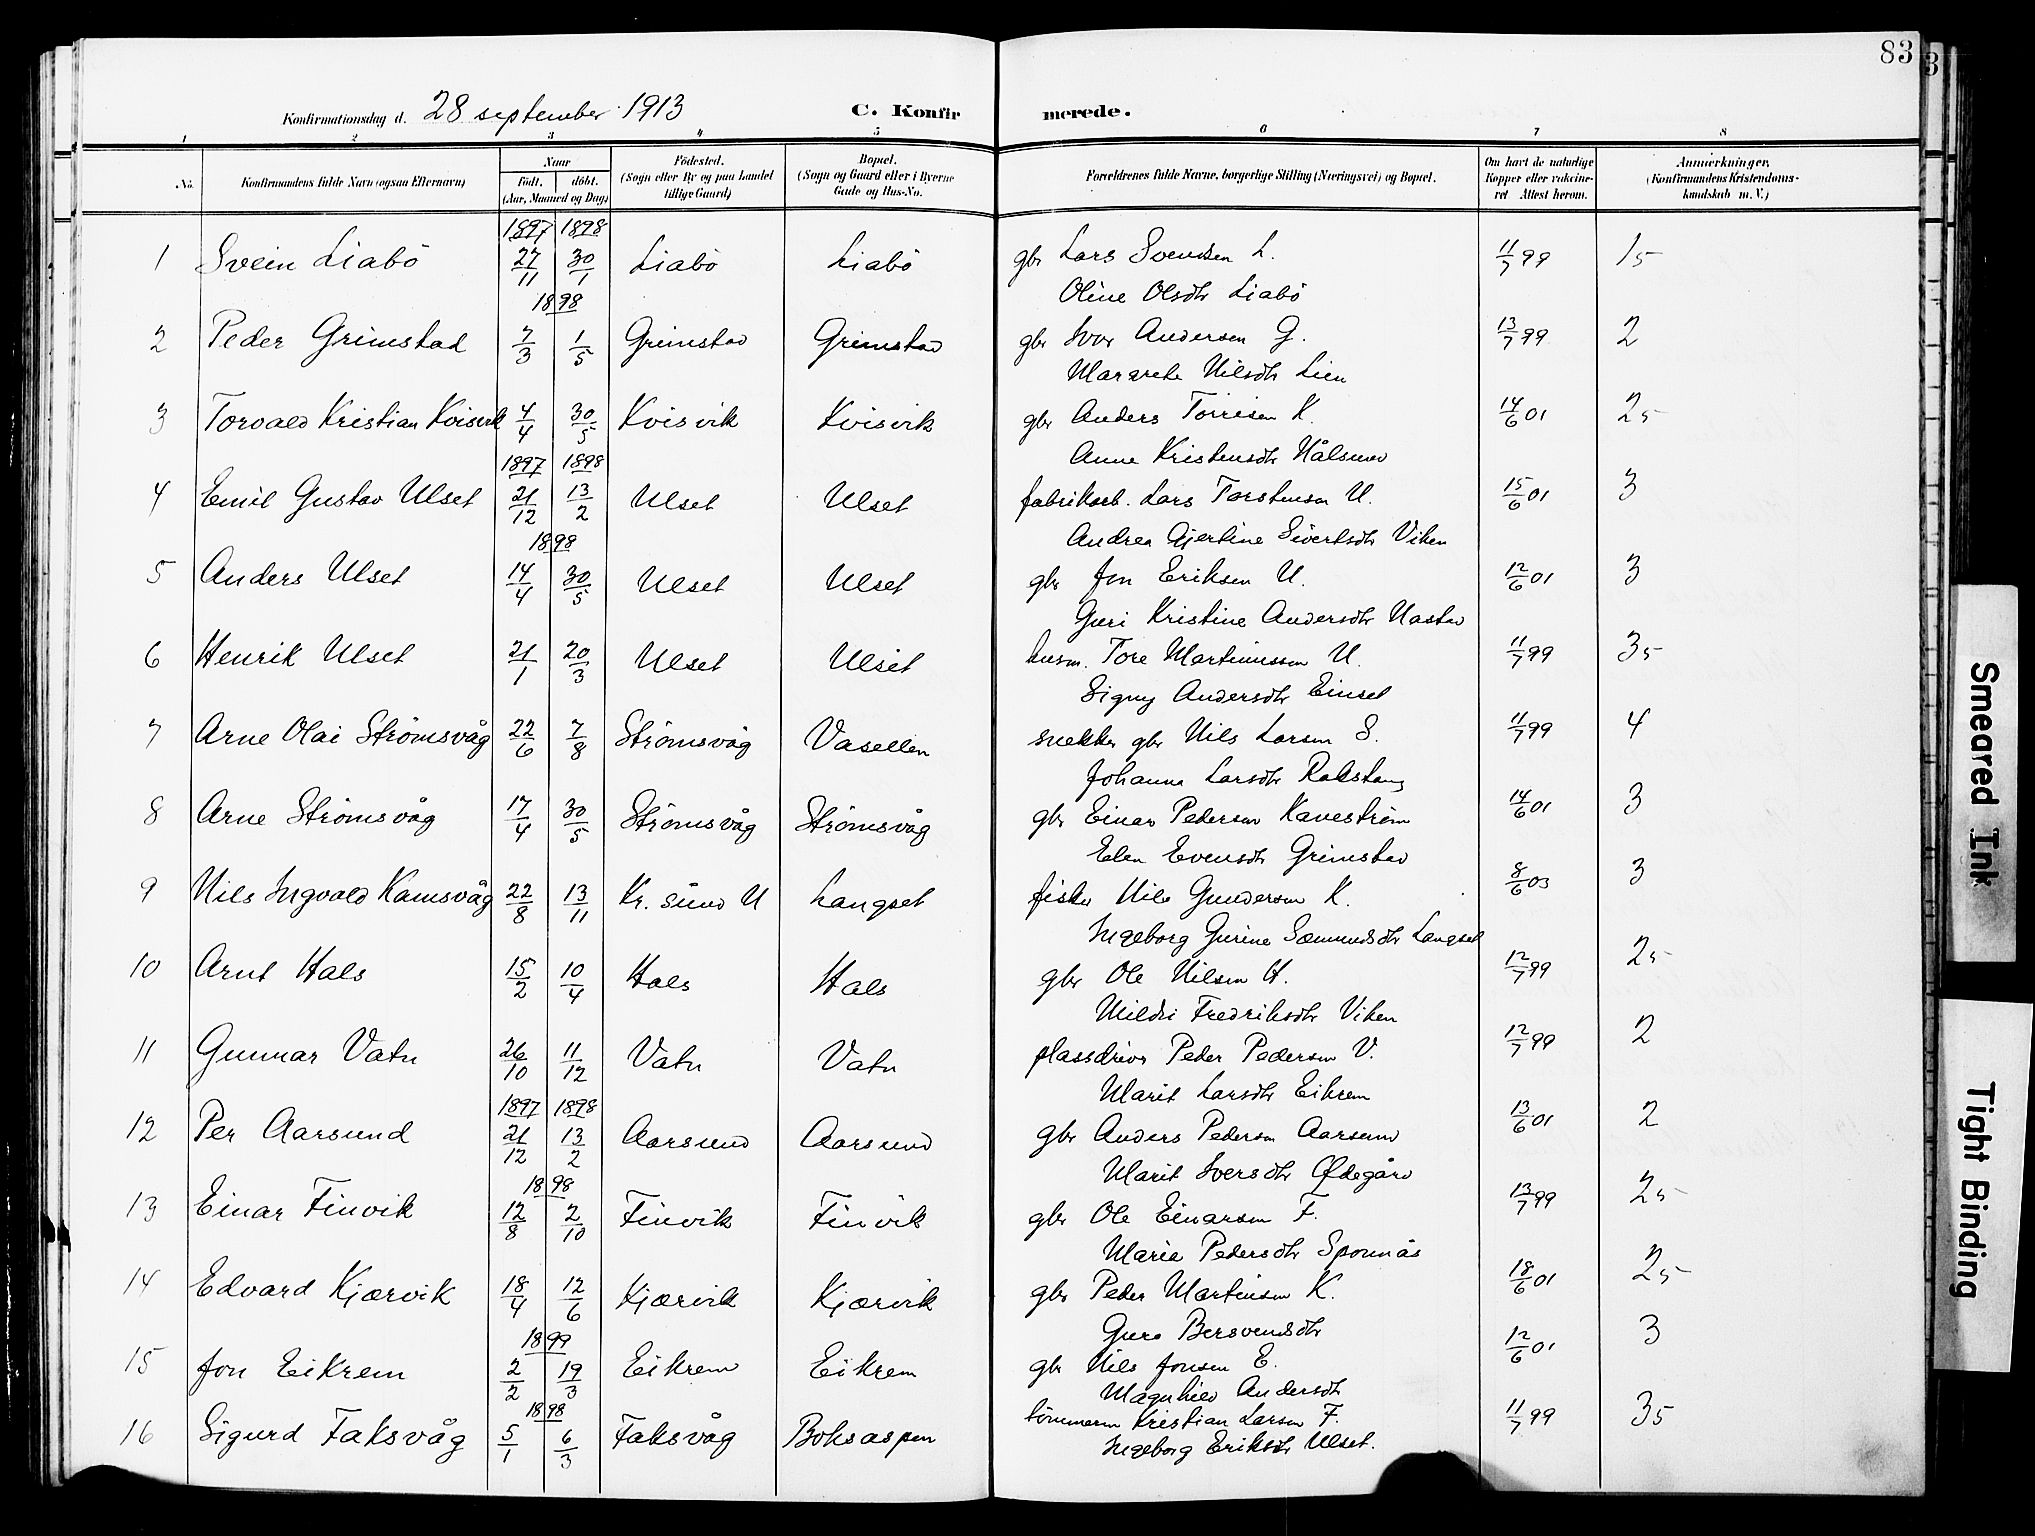 83
Konfirmationsdag d. 28 september 1913 C. Konfir merede.
1 2 3 4 5 6 7 8
No. Konfirmandens fulde Navn (ogsaa Efternavn) Naar Født. døbt. (Aar, Maaned og Dag) Fødested. (Sogn eller By og paa Landet tillige Gaard) Bopæl. (Sogn og Gaard eller i Byerne Gade og Hus-No. Forældrenes fulde Navne, borgerlige Stilling (Næringsvei) og Bopæl. Om havt de naturlige Kopper eller vaccineret Attest herom. Anmærkninger, (Konfirmandens Kristendomskundskab m. V.)
1897 1898
1 Svein Liabö 27/11 30/1 Liabö Liabö gbr Lars Svendsen L. 11/7 99 15
Oline Olsdtr Liabö
1898
2 Peder Grimstad 7/3 1/5 Grimstad Grimstad gbr Ivar Andersen G. 13/7 99 2
Margrete Nilsdtr Lien
3 Torvald Kristian Kvisvik 4/4 30/5 Kvisvik Kvisvik gbr Anders Torrisen K. 14/6 01 25
Anne Kristensdtr
1897 1898
4 Emil Gustav Ulset 21/12 13/2 Ulset Ulset fabrikarb. Lars Torstensen U. 15/6 01 3
Andrea Gjertine Sivertsdtr Viken
1898
5 Anders Ulset 14/4 30/5 Ulset Ulset gbr Jon Eriksen U. 12/6 01 3
Guri Kristine Andersdtr Nastad
6 Henrik Ulset 21/1 20/3 Ulset Ulset husm. Tore Martinussen U. 11/7 99 35
Signy Andersdtr Einset
7 Arne Olai Strömsvåg 22/6 7/8 Strömsvåg Vasellen snekker gbr Nils Larsen S. 11/7 99 4
Johanna Larsdtr Rakstang
8 Arne Strömsvåg 17/4 30/5 Strömsvåg Strömsvåg gbr Einar Pedersen Kaneström 14/6 01 3
Elen Evensdtr Grimstad
9 Nils Ingvald Kamsvåg 22/8 13/11 Kr. sund N Langset fisker Nils Gundersen K. 8/6 03 3
Ingeborg Gurine Sæmundsdtr Langset
10 Arnt Hals 15/2 10/4 Hals Hals gbr Ole Nilsen H. 12/7 99 25
Mildri Fredriksdtr Viken
11 Gunnar Vatn 26/10 11/12 Vatn Vatn plassdriver Peder Pedersen V. 12/7 99 2
Marit Larsdtr Eikrem
1897 1898
12 Per Aarsund 21/12 13/2 Aarsund Aarsund gbr Anders Pedersen Aarsund 13/6 01 2
Marit Iversdtr Ødegård
1898
13 Einar Finvik 12/8 2/10 Finvik Finvik gbr Ole Einarsen F. 13/7 99 25
Marie Pedersdtr Sponnäs
14 Edvard Kjærvik 18/4 12/6 Kjærvik Kjærvik gbr Peder Martinsen K. 18/6 01 25
Guro Bersvendsdtr
1899
15 Jon Eikrem 2/2 19/3 Eikrem Eikrem gbr Nils Jonsen E. 12/6 01 3
Magnhild Andersdtr
1898
16 Sigurd Faksvåg 5/1 6/3 Faksvåg Boksaspen tömmerm Kristian Larsen F. 11/7 99 35
Ingeborg Eriksdtr Ulset.
Smeared Ink
Tight Binding